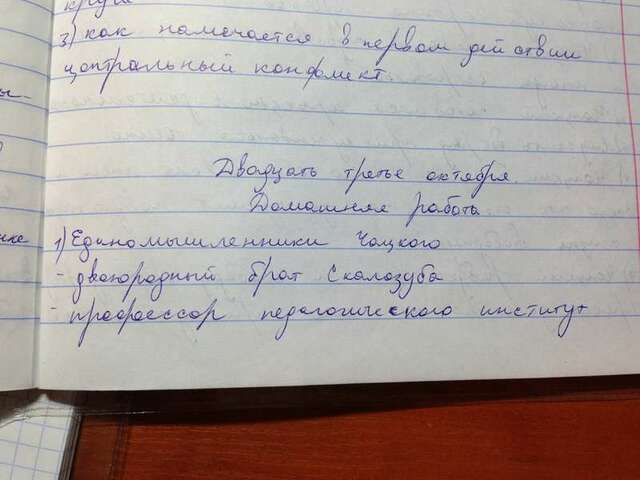 3) как намечается в первом действии
центральный конфликт
Двадцать третье октября
Домашняя работа
1) Единомышленники Чацкого
- двоюродный брат Скалозуба
- профессор педагогического институт